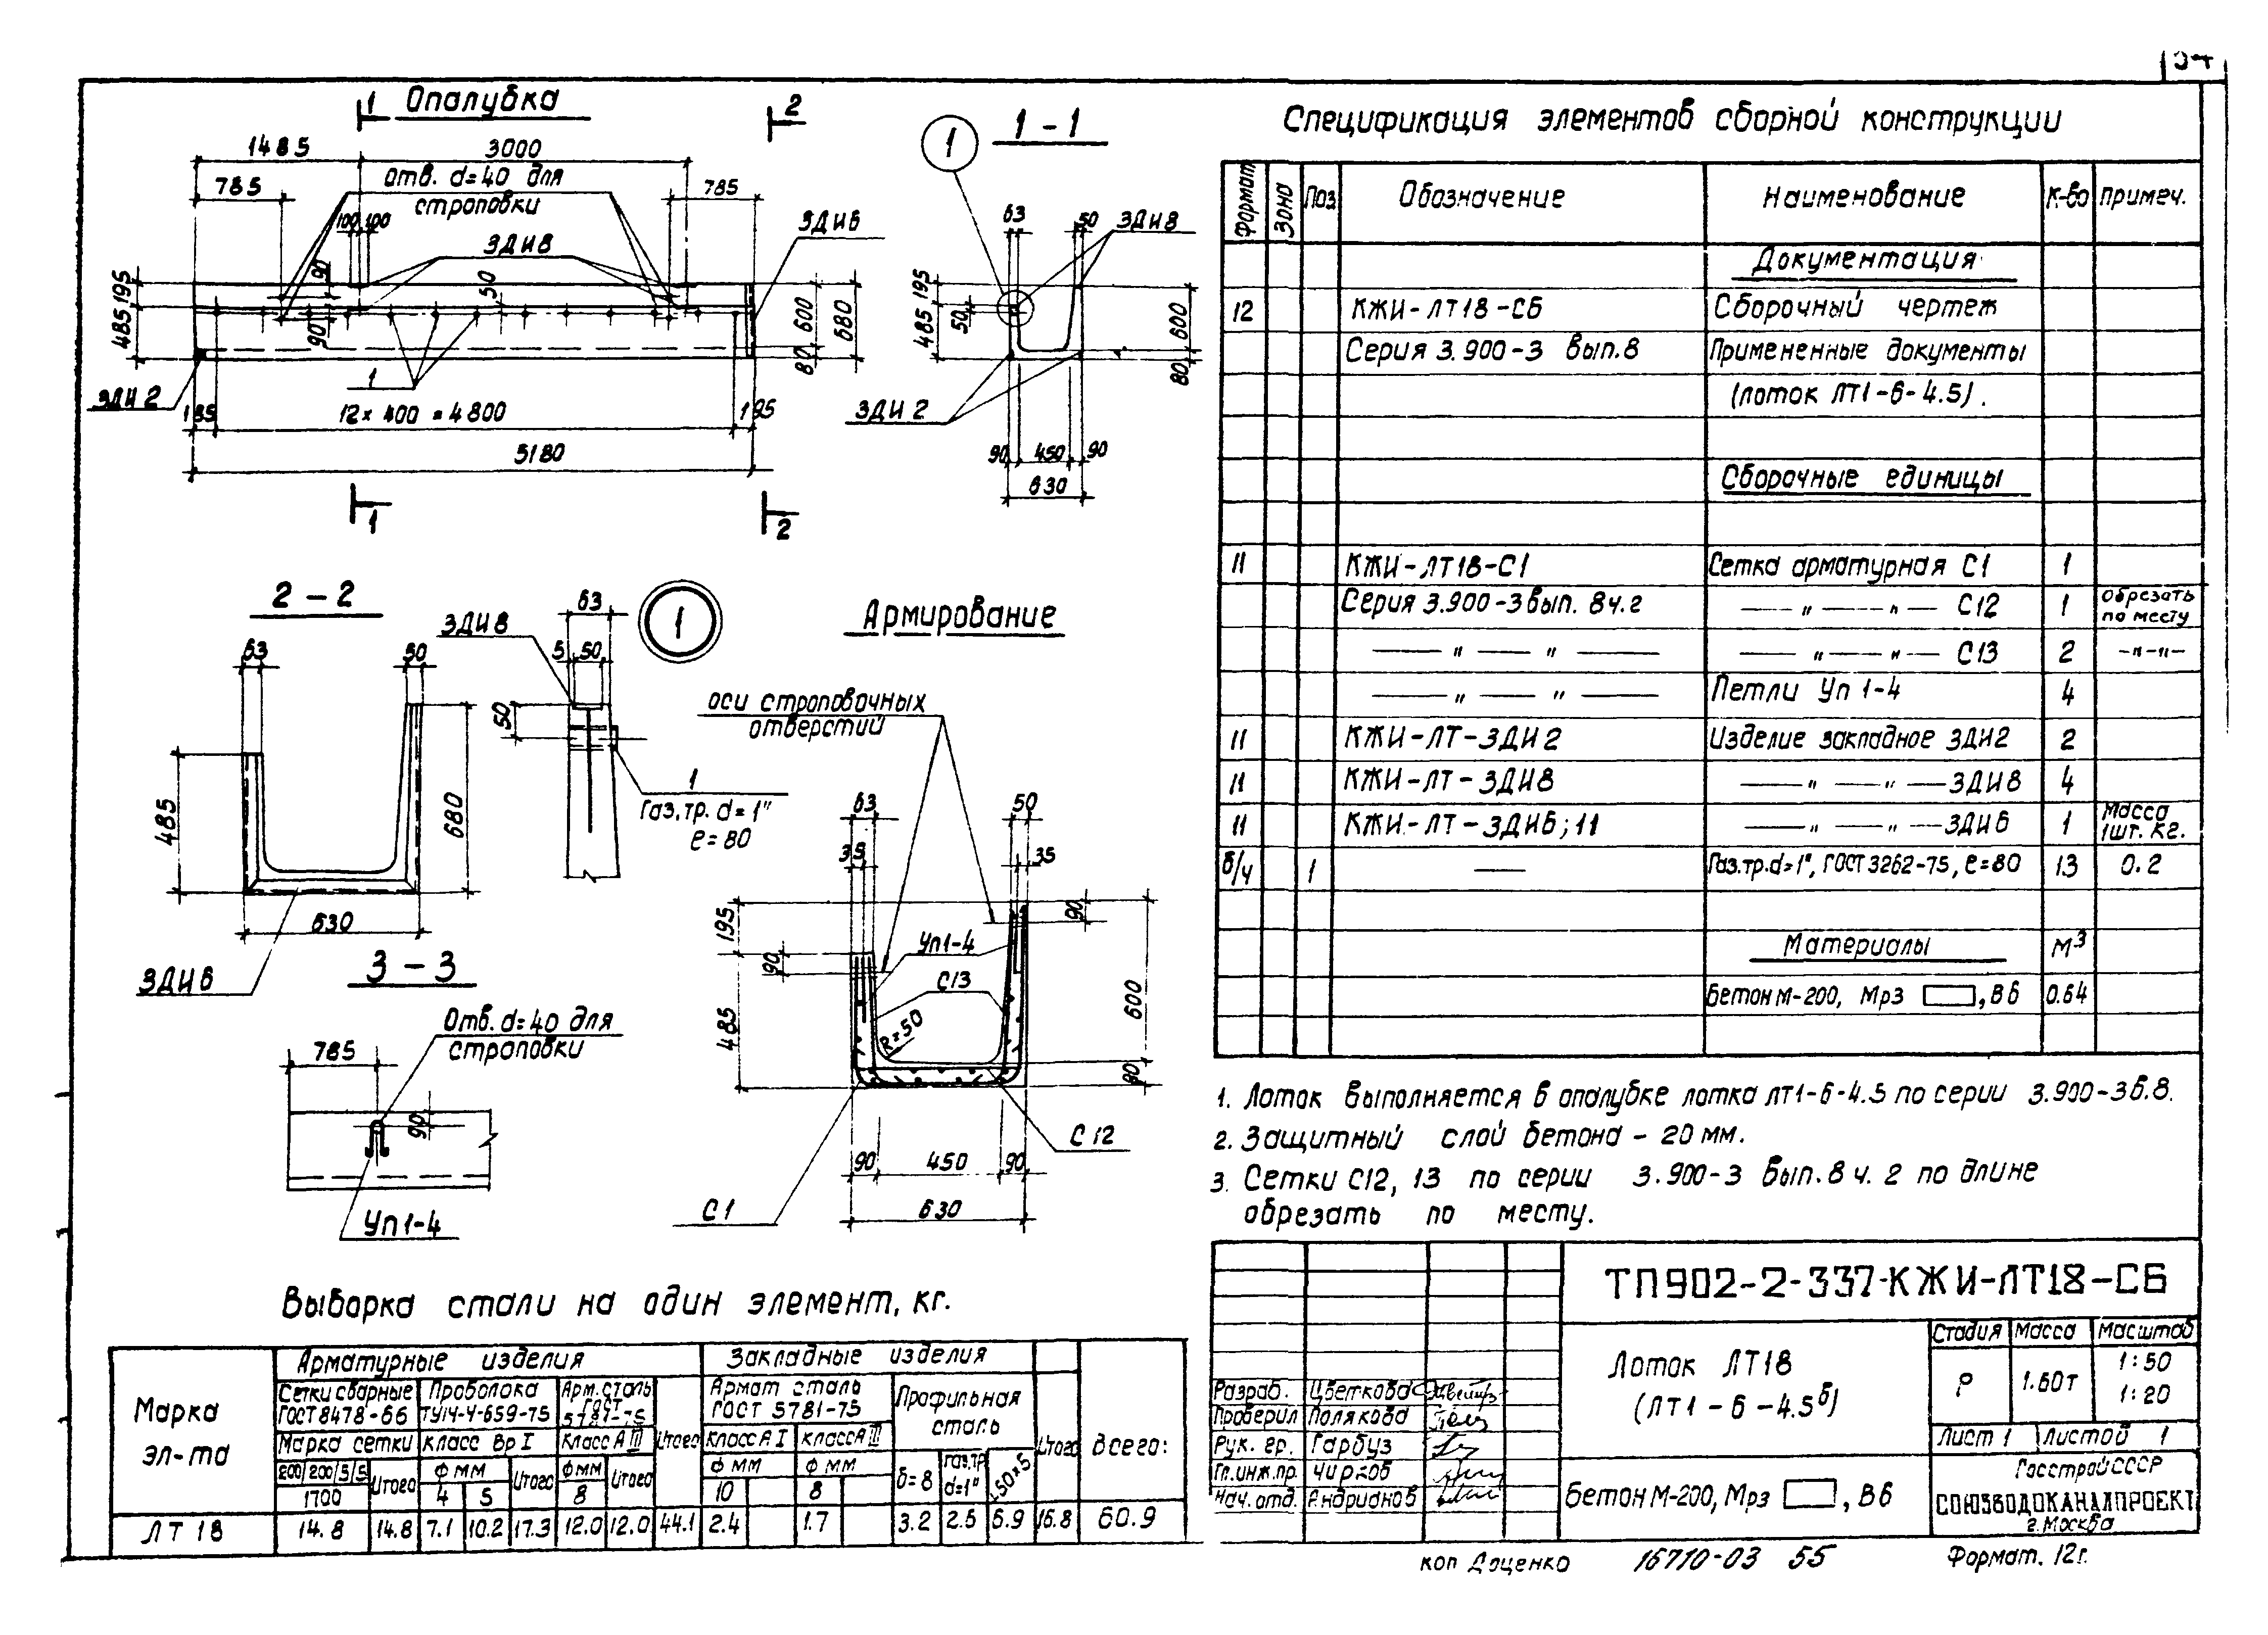 34
Опалубка
1
2
1485
3000
Отв. d=40 для
строповки
785
785
100 100
ЗДИ8
ЗДИ6
195
485
90
90
50
600
680
80
1
ЗДИ2
185
12 х 400 = 4800
195
5180
1
2
1
1-1
63
50
ЗДИ8
195
485
50
600
80
ЗДИ2
90
450
90
630
2-2
63
50
485
680
630
ЗДИ6
ЗДИ8
63
5
50
50
1
1
Газ.тр. d=1"
е=80
3-3
785
Отв. d=40 для
строповки
90
Уп1-4
Армирование
оси строповочных
отверстий
63
50
35
35
195
90
90
485
600
80
Уп1-4
С13
R=50
С12
С1
90
450
90
630
Спецификация элементов сборной конструкции
Формат Зона Поз Обозначение Наименование К-во Примеч.
Документация
12 КЖИ-ЛТ18-СБ Сборочный чертеж
Серия 3.900-3 вып.8 Примененные документы
(лоток ЛТ1-6-4.5).
Сборочные единицы
11 КЖИ-ЛТ18-С1 Сетка арматурная С1 1
Серия 3.900-3 вып. 8 ч.2 —"—"— С12 1 обрезать по месту
—"—"— —"—"— С13 2 —"—"—
—"—"— Петли Уп1-4 4
11 КЖИ-ЛТ-ЗДИ2 Изделие закладное ЗДИ2 2
11 КЖИ-ЛТ-ЗДИ8 —"—"— ЗДИ8 4
11 КЖИ-ЛТ-ЗДИ6;11 —"—"— ЗДИ6 1 Масса 1шт. кг.
б/ч 1 — Газ.тр.d=1", ГОСТ 3262-75, е=80 13 0.2
Материалы м3
Бетон М-200, Мрз , В6 0.64
1. Лоток выполняется в опалубке лотка ЛТ1-6-4.5 по серии 3.900-3 в.8.
2. Защитный слой бетона - 20 мм.
3. Сетки С12, 13 по серии 3.900-3 вып.8 ч. 2 по длине
обрезать по месту.
Выборка стали на один элемент, кг.
Марка эл-та
Арматурные изделия
Закладные изделия
Сетки сварные ГОСТ 8478-66
Проволока ТУ14-4-659-75
Арм.сталь ГОСТ 5781-75
Итого
Армат сталь ГОСТ 5781-75
Профильная сталь
Итого
Всего:
Марка сетки
класс Вр I
Класс А III
Класс А I
класс А III
200/200/5/5
1700
Итого
ф мм
4 5
Итого
фмм
8
Итого
ф мм
10
ф мм
8
δ=8
газ.тр d=1"
∟50х5
ЛТ18 14.8 14.8 7.1 10.2 17.3 12.0 12.0 44.1 2.4 1.7 3.2 2.6 6.9 16.8 60.9
ТП902-2-337-КЖИ-ЛТ18-СБ
Лоток ЛТ18
(ЛТ1-6-4.5б)
Стадия Масса Масштаб
Р 1.60т 1:50
1:20
Лист 1 Листов 1
Разраб. Цветкова
Проверил Полякова
Рук. гр. Гарбуз
Гл.инж.пр. Чирков
Нач. отд. Андрианов
Бетон М-200, Мрз , В6
Госстрой СССР
СОЮЗВОДОКАНАЛПРОЕКТ
г. Москва
коп Доценко
16710-03 55
Формат. 12г.